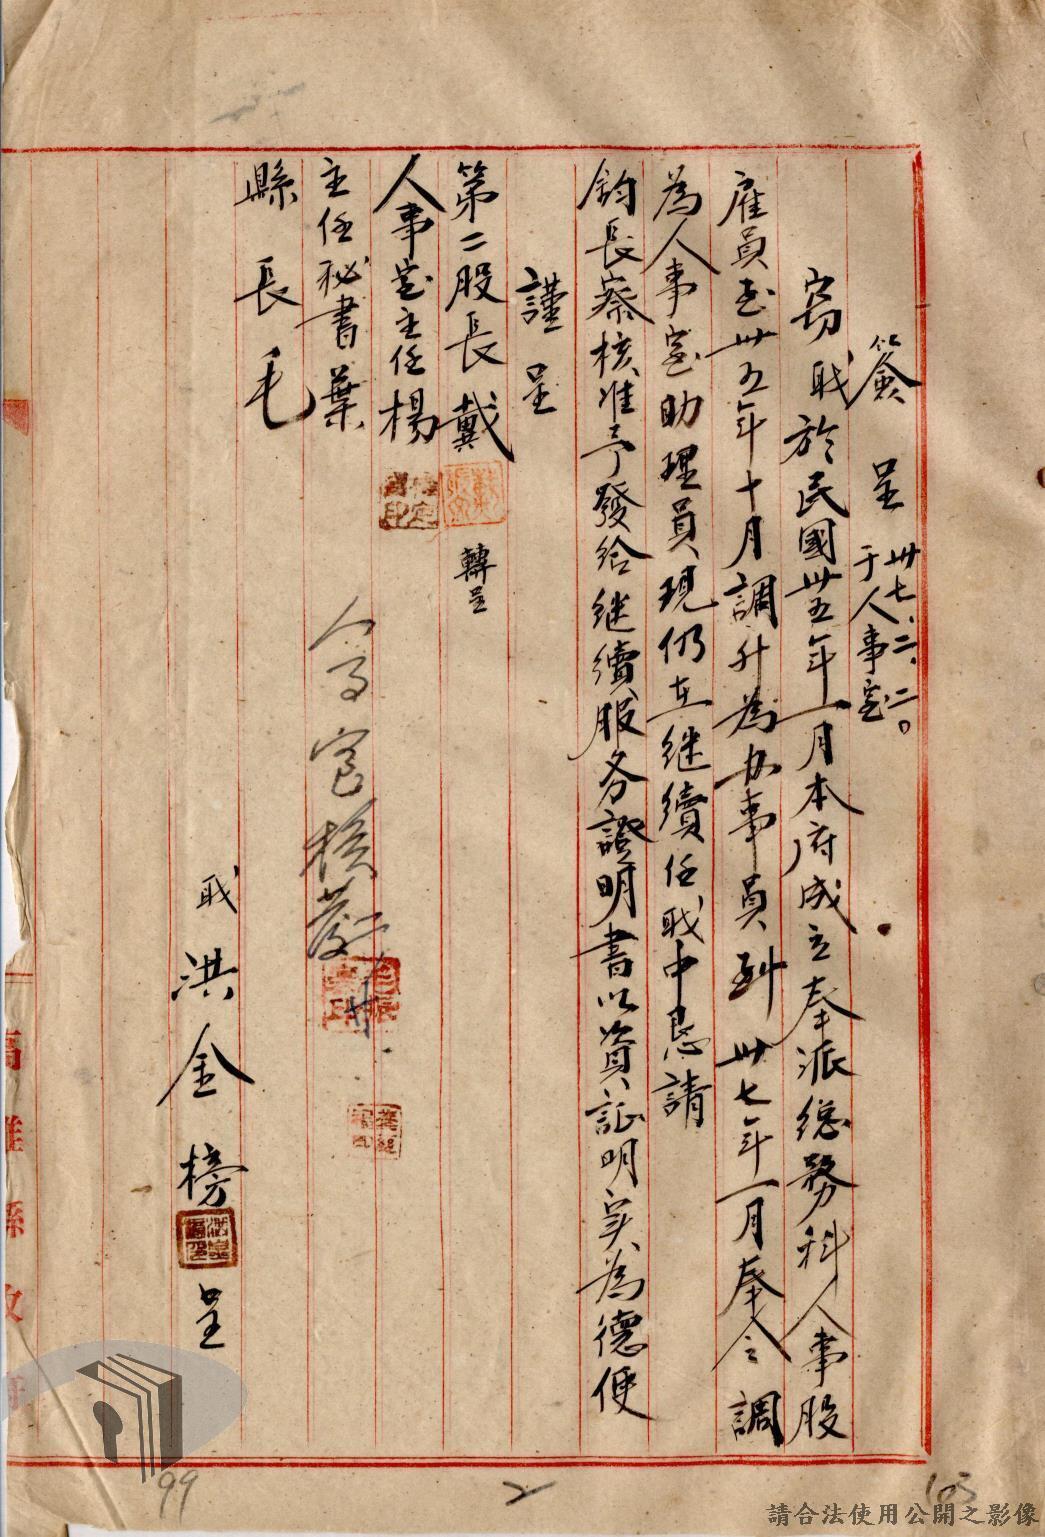 簽呈 卅七、二、二〇
于人事室
竊职於民國卅五年一月本府成立奉派總務科人事股
雇員至卅五年十月調升為办事員到卅七年一月奉令調
為人事室助理員現仍在继續任职中恳請
鈞長察核准予發給继續服务證明書以資証明实為德便
謹呈
第二股長戴 轉呈
人事室主任楊
主任秘書葉
縣長毛
职洪金榜呈
高雄縣政府
99
2
103
請合法使用公開之影像